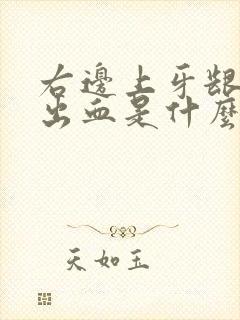 右邊上牙齦
出血是什麼
天如玉